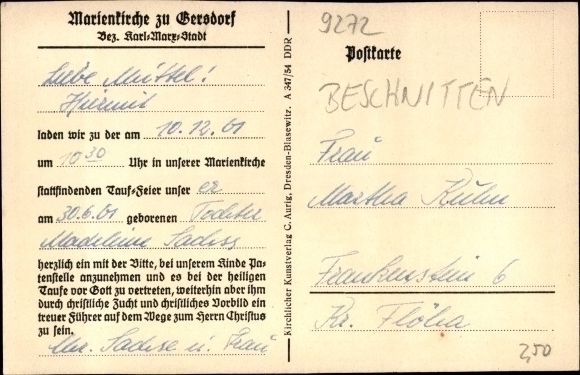 Marienkirche zu Gersdorf
Bez. Karl-Marx-Stadt
Liebe Muttel!
Hiermit
laden wir zu der am 10.12.61
um 10 30 Uhr in unserer Marienkirche
stattfindenden Tauf-Feier unser er
am 30.6.61 geborenen Tochter
Madeleine Sachse
herzlich ein mit der Bitte, bei unserem Kinde Pa-
tenstelle anzunehmen und es bei der heiligen
Taufe vor Gott zu vertreten, weiterhin aber ihm
durch christliche Zucht und christliches Vorbild ein
treuer Führer auf dem Wege zum Herrn Christus
zu sein.
Sachse u. Frau
Kirchlicher Kunstverlag C. Aurig, Dresden-Blasewitz. A 347/54 DDR
9272
Postkarte
BESCHNITTEN
Frau
Martha Kuhn
Frankenstein 6
Kr. Flöha
2,50